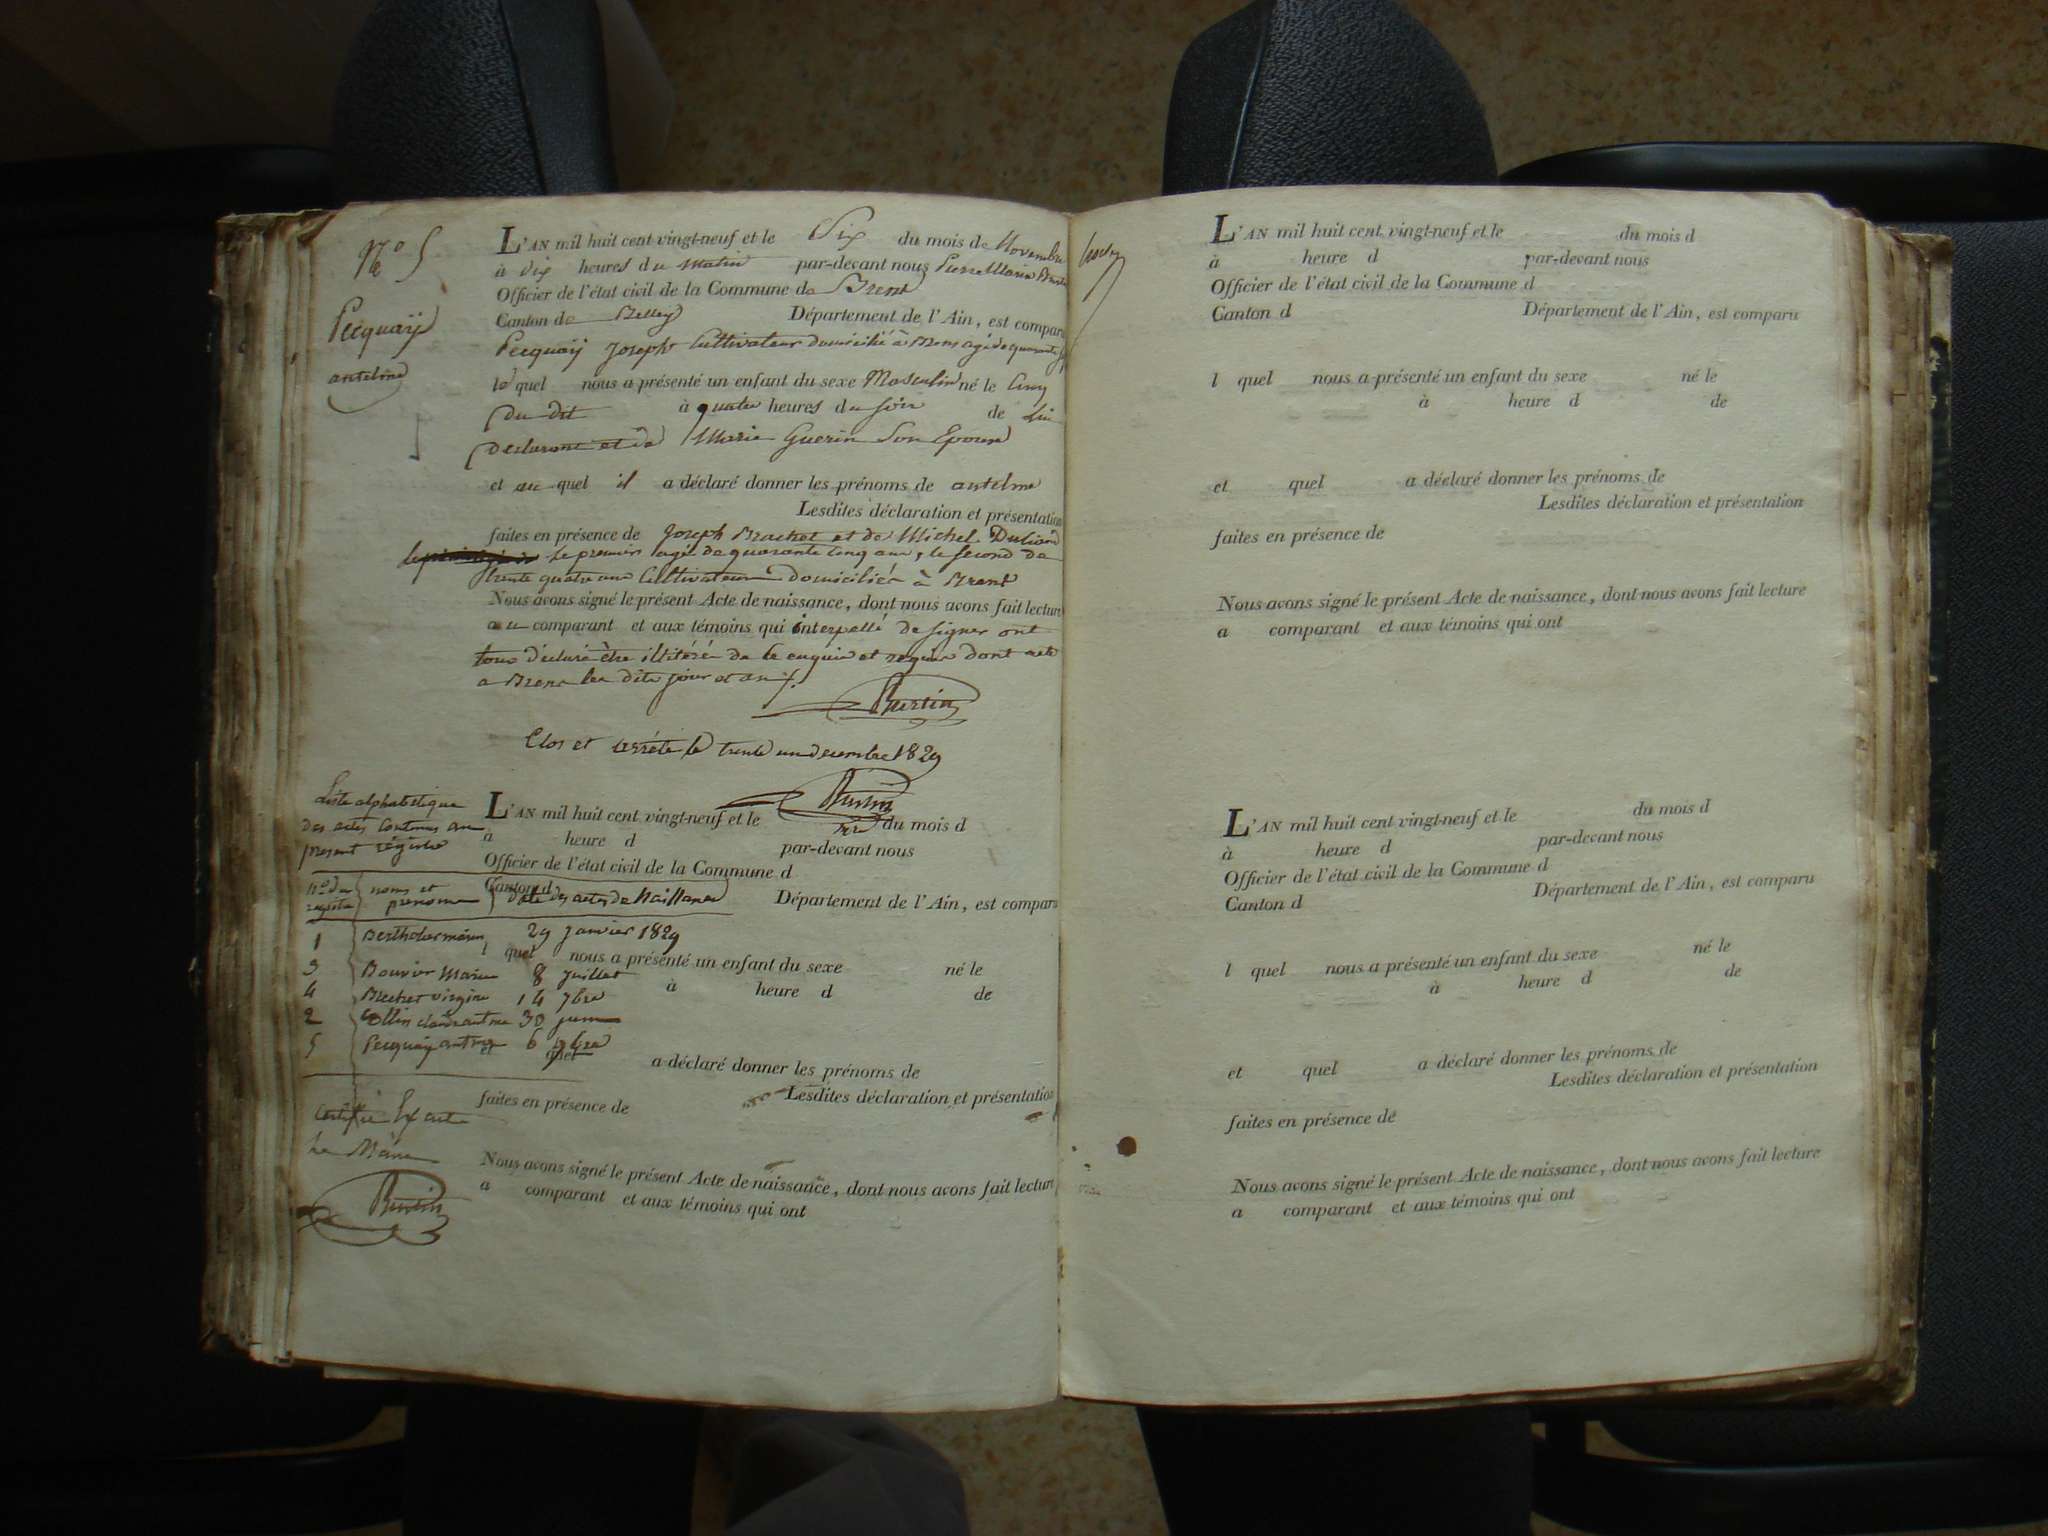 N.o 5
Pecquay
antelme
L'AN mil huit cent vingt-neuf et le Six du mois de Novembre
à dix heures du matin par-devant nous Pierre Marie Burtin
Officier de l'état civil de la Commune de Brens
Canton de Belley Département de l'Ain, est comparu
Pecquay Joseph Cultivateur domicilié à Brens agé de quarante
le quel nous a présenté un enfant du sexe Masculin né le Cinq
du dit à quatre heures du soir de lui
declarant et de Marie Guerin Son Epouse
et au quel il a déclaré donner les prénoms de antelme
Lesdites déclaration et présentation
faites en présence de Joseph Brachet et de Michel
le premier agé de quarante cinq ans, le second de
trente quatre ans Cultivateurs domiciliés à Brens
Nous avons signé le présent Acte de naissance, dont nous avons fait lecture
au comparant et aux témoins qui interpellé de signer ont
tous déclaré être illitéré de ce enquis et requis dont acte
a Brens les dits jour et an
Burtin
Clos et arrété le trente un decembre 1829
Burtin
Liste alphabétique
des actes contenus au
present régistre
L'AN mil huit cent vingt-neuf et le du mois d
à heure d par-devant nous
Officier de l'état civil de la Commune d
Canton d Département de l'Ain, est comparu
n.o des noms et date des actes de Naissance
registre prenoms
1 29 janvier 1829
l quel nous a présenté un enfant du sexe né le
3 Bouvier Marie 8 juillet
à heure d de
4 Brachet virginie 14 7bre
2 Collin 30 juin
5 Pecquay antme 6 9bre
et quel a déclaré donner les prénoms de
Lesdites déclaration et présentation
faites en présence de
Certifié Exact
Le Maire
Burtin
Nous avons signé le présent Acte de naissance, dont nous avons fait lecture
a comparant et aux témoins qui ont
L'AN mil huit cent vingt-neuf et le du mois d
à heure d par-devant nous
Officier de l'état civil de la Commune d
Canton d Département de l'Ain, est comparu
l quel nous a présenté un enfant du sexe né le
à heure d de
et quel a déclaré donner les prénoms de
Lesdites déclaration et présentation
faites en présence de
Nous avons signé le présent Acte de naissance, dont nous avons fait lecture
a comparant et aux témoins qui ont
L'AN mil huit cent vingt-neuf et le du mois d
à heure d par-devant nous
Officier de l'état civil de la Commune d
Canton d Département de l'Ain, est comparu
l quel nous a présenté un enfant du sexe né le
à heure d de
et quel a déclaré donner les prénoms de
Lesdites déclaration et présentation
faites en présence de
Nous avons signé le présent Acte de naissance, dont nous avons fait lecture
a comparant et aux témoins qui ont